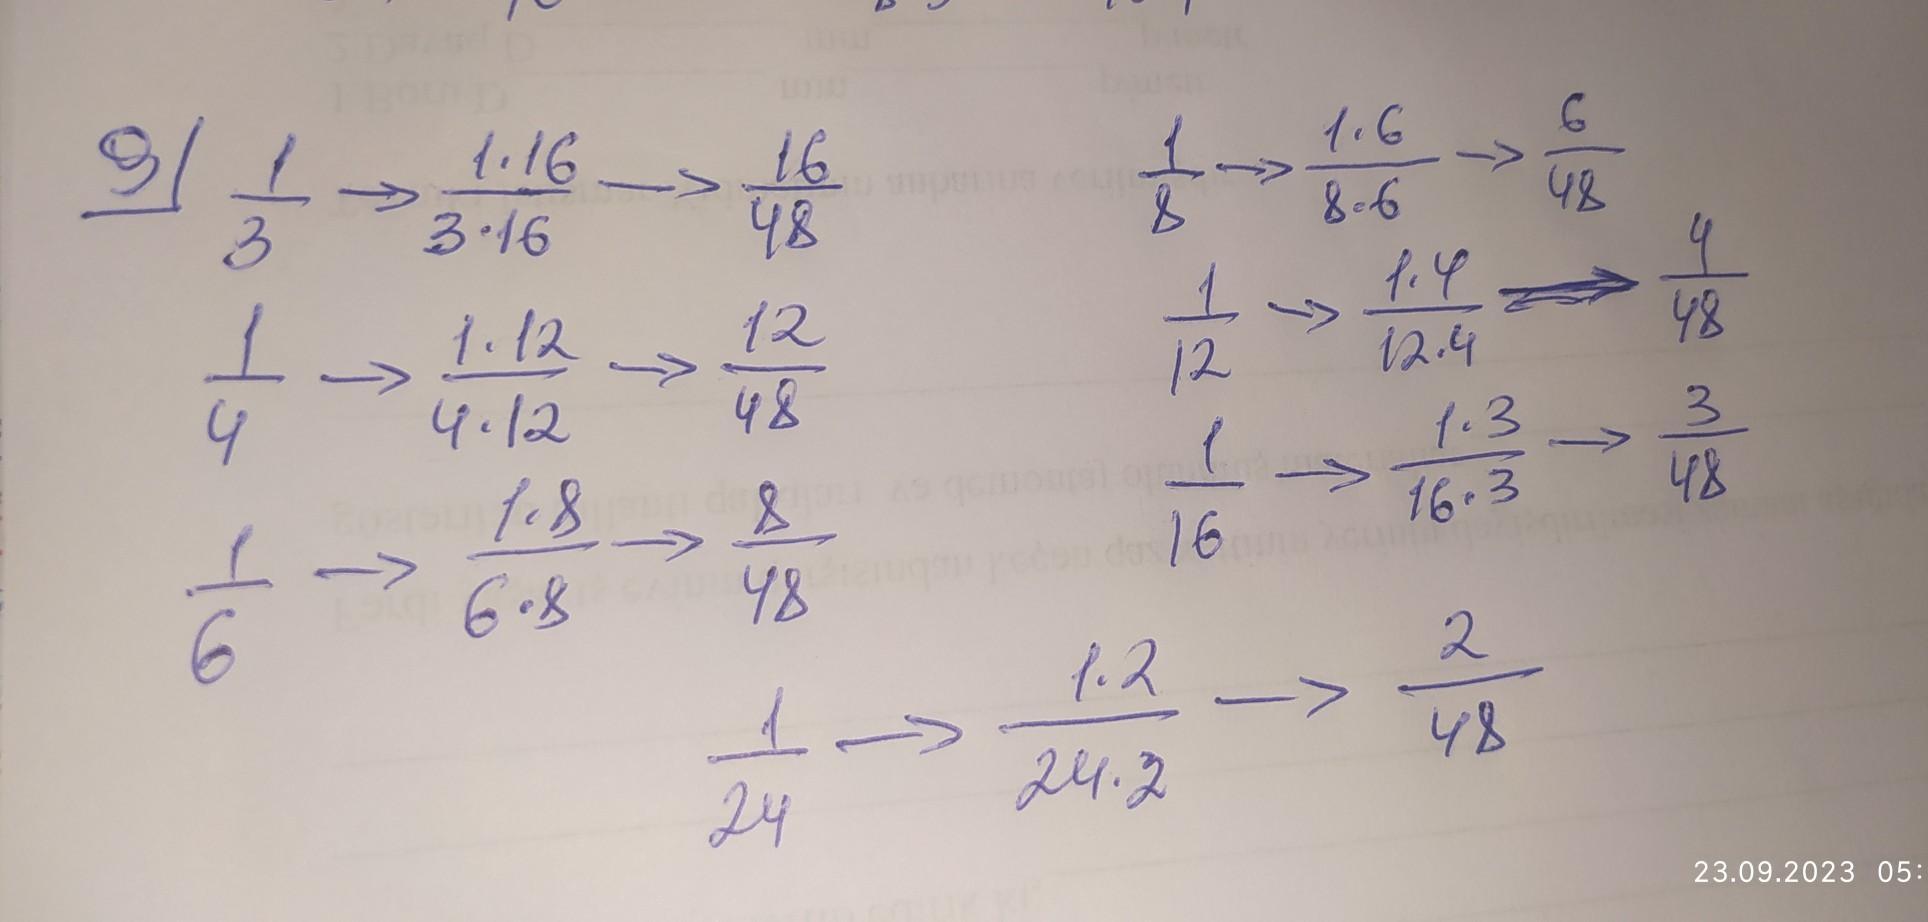 9/ 1/3 → 1·16/3·16 → 16/48
1/4 → 1·12/4·12 → 12/48
1/6 → 1·8/6·8 → 8/48
1/8 → 1·6/8·6 → 6/48
1/12 → 1·4/12·4 → 4/48
1/16 → 1·3/16·3 → 3/48
1/24 → 1·2/24·2 → 2/48
23.09.2023 05: